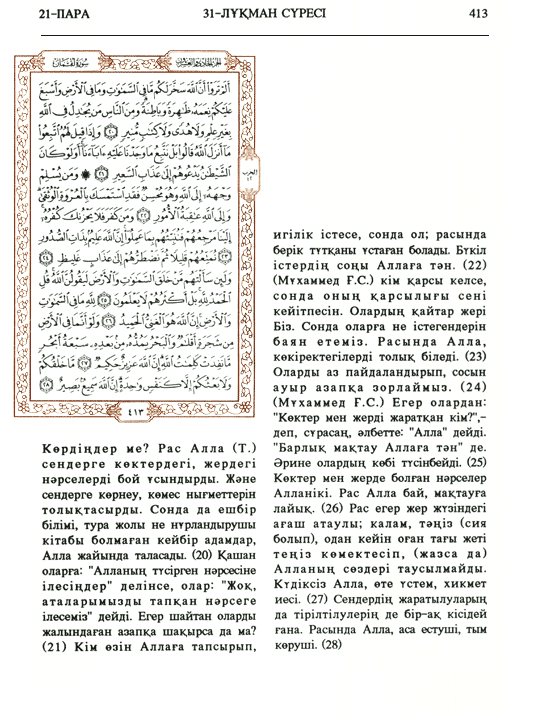 21–ПАРА
31–ЛҰҚМАН СҮРЕСІ
413
سورة لقمان
الجزء الحادي والعشرون
أَلَمْ تَرَوْا أَنَّ اللَّهَ سَخَّرَ لَكُم مَّا فِي السَّمَاوَاتِ وَمَا فِي الْأَرْضِ وَأَسْبَغَ
عَلَيْكُمْ نِعَمَهُ ظَاهِرَةً وَبَاطِنَةً وَمِنَ النَّاسِ مَن يُجَادِلُ فِي اللَّهِ
بِغَيْرِ عِلْمٍ وَلَا هُدًى وَلَا كِتَابٍ مُّنِيرٍ ٢٠ وَإِذَا قِيلَ لَهُمُ اتَّبِعُوا
مَا أَنزَلَ اللَّهُ قَالُوا بَلْ نَتَّبِعُ مَا وَجَدْنَا عَلَيْهِ آبَاءَنَا أَوَلَوْ كَانَ
الشَّيْطَانُ يَدْعُوهُمْ إِلَى عَذَابِ السَّعِيرِ ٢١ ۞ وَمَن يُسْلِمْ
وَجْهَهُ إِلَى اللَّهِ وَهُوَ مُحْسِنٌ فَقَدِ اسْتَمْسَكَ بِالْعُرْوَةِ الْوُثْقَى
وَإِلَى اللَّهِ عَاقِبَةُ الْأُمُورِ ٢٢ وَمَن كَفَرَ فَلَا يَحْزُنكَ كُفْرُهُ
إِلَيْنَا مَرْجِعُهُمْ فَنُنَبِّئُهُم بِمَا عَمِلُوا إِنَّ اللَّهَ عَلِيمٌ بِذَاتِ الصُّدُورِ
٢٣ نُمَتِّعُهُمْ قَلِيلًا ثُمَّ نَضْطَرُّهُمْ إِلَى عَذَابٍ غَلِيظٍ ٢٤
وَلَئِن سَأَلْتَهُم مَّنْ خَلَقَ السَّمَاوَاتِ وَالْأَرْضَ لَيَقُولُنَّ اللَّهُ قُلِ
الْحَمْدُ لِلَّهِ بَلْ أَكْثَرُهُمْ لَا يَعْلَمُونَ ٢٥ لِلَّهِ مَا فِي السَّمَاوَاتِ
وَالْأَرْضِ إِنَّ اللَّهَ هُوَ الْغَنِيُّ الْحَمِيدُ ٢٦ وَلَوْ أَنَّمَا فِي الْأَرْضِ
مِن شَجَرَةٍ أَقْلَامٌ وَالْبَحْرُ يَمُدُّهُ مِن بَعْدِهِ سَبْعَةُ أَبْحُرٍ
مَّا نَفِدَتْ كَلِمَاتُ اللَّهِ إِنَّ اللَّهَ عَزِيزٌ حَكِيمٌ ٢٧ مَّا خَلْقُكُمْ
وَلَا بَعْثُكُمْ إِلَّا كَنَفْسٍ وَاحِدَةٍ إِنَّ اللَّهَ سَمِيعٌ بَصِيرٌ ٢٨
٤١٣
Көрдіңдер ме? Рас Алла (Т.)
сендерге көктердегі, жердегі
нәрселерді бой ұсындырды. Және
сендерге көрнеу, көмес нығметтерін
толықтасырды. Сонда да ешбір
білімі, тура жолы не нұрландырушы
кітабы болмаған кейбір адамдар,
Алла жайында таласады. (20) Қашан
оларға: "Алланың түсірген нәрсесіне
ілесіңдер" делінсе, олар: "Жоқ,
аталарымызды тапқан нәрсеге
ілесеміз" дейді. Егер шайтан оларды
жалындаған азапқа шақырса да ма?
(21) Кім өзін Аллаға тапсырып,
игілік істесе, сонда ол; расында
берік тұтқаны ұстаған болады. Бүкіл
істердің соңы Аллаға тән. (22)
(Мұхаммед Ғ.С.) кім қарсы келсе,
сонда оның қарсылығы сені
кейітпесін. Олардың қайтар жері
Біз. Сонда оларға не істегендерін
баян етеміз. Расында Алла,
көкіректегілерді толық біледі. (23)
Оларды аз пайдаландырып, сосын
ауыр азапқа зорлаймыз. (24)
(Мұхаммед Ғ.С.) Егер олардан:
"Көктер мен жерді жаратқан кім?",–
деп, сұрасаң, әлбетте: "Алла" дейді.
"Барлық мақтау Аллаға тән" де.
Әрине олардың көбі түсінбейді. (25)
Көктер мен жерде болған нәрселер
Алланікі. Рас Алла бай, мақтауға
лайық. (26) Рас егер жер жүзіндегі
ағаш атаулы; калам, тәңіз (сия
болып), одан кейін оған тағы жеті
теңіз көмектесіп, (жазса да)
Алланың сөздері таусылмайды.
Күдіксіз Алла, өте үстем, хикмет
иесі. (27) Сендердің жаратылуларың
да тірілтілулерің де бір–ақ кісідей
ғана. Расында Алла, аса естуші, тым
көруші. (28)